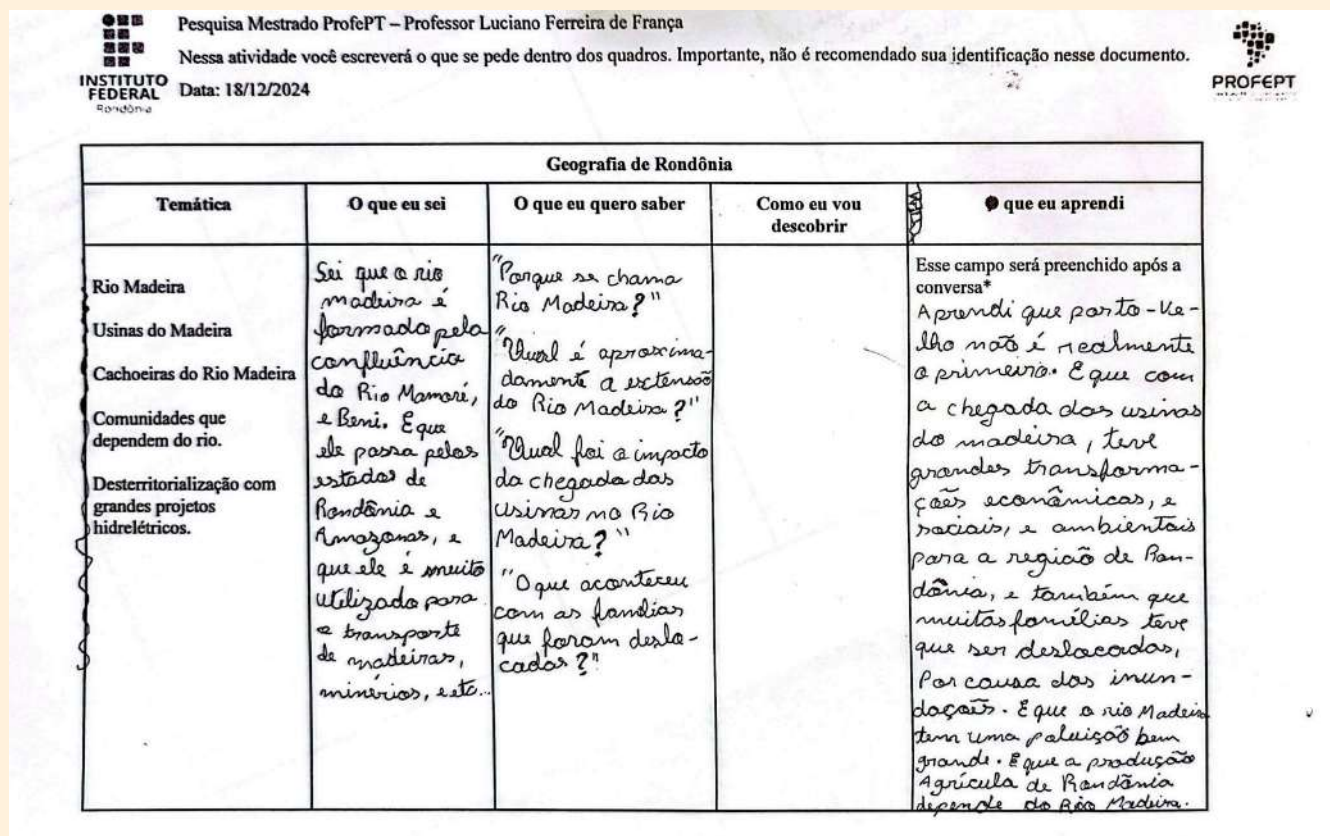 Pesquisa Mestrado ProfePT – Professor Luciano Ferreira de França
Nessa atividade você escreverá o que se pede dentro dos quadros. Importante, não é recomendado sua identificação nesse documento.
INSTITUTO
FEDERAL
Rondônia
Data: 18/12/2024
PROFEPT
Geografia de Rondônia
Temática
O que eu sei
O que eu quero saber
Como eu vou
descobrir
O que eu aprendi
Rio Madeira
Usinas do Madeira
Cachoeiras do Rio Madeira
Comunidades que
dependem do rio.
Desterritorialização com
grandes projetos
hidrelétricos.
Sei que o rio
madeira é
formado pela
confluência
do Rio Mamoré,
e Beni. E que
ele passa pelos
estados de
Rondônia e
Amazonas, e
que ele é muito
utilizado para
o transporte
de madeiras,
minérios, etc...
"Porque se chama
Rio Madeira?"
"Qual é aproxima-
damente a extensão
do Rio Madeira?"
"Qual foi o impacto
da chegada das
Usinas no Rio
Madeira?"
"O que aconteceu
com as famílias
que foram deslo-
cadas?"
Esse campo será preenchido após a
conversa*
Aprendi que porto-Ve-
lho não é realmente
o primeiro. E que com
a chegada das usinas
do madeira, teve
grandes transforma-
ções econômicas, e
sociais, e ambientais
para a região de Ron-
dônia, e também que
muitas famílias teve
que ser deslocadas,
Por causa das inun-
dações. E que o rio Madeira
tem uma poluição bem
grande. E que a produção
Agrícula de Rondônia
depende do Rio Madeira.